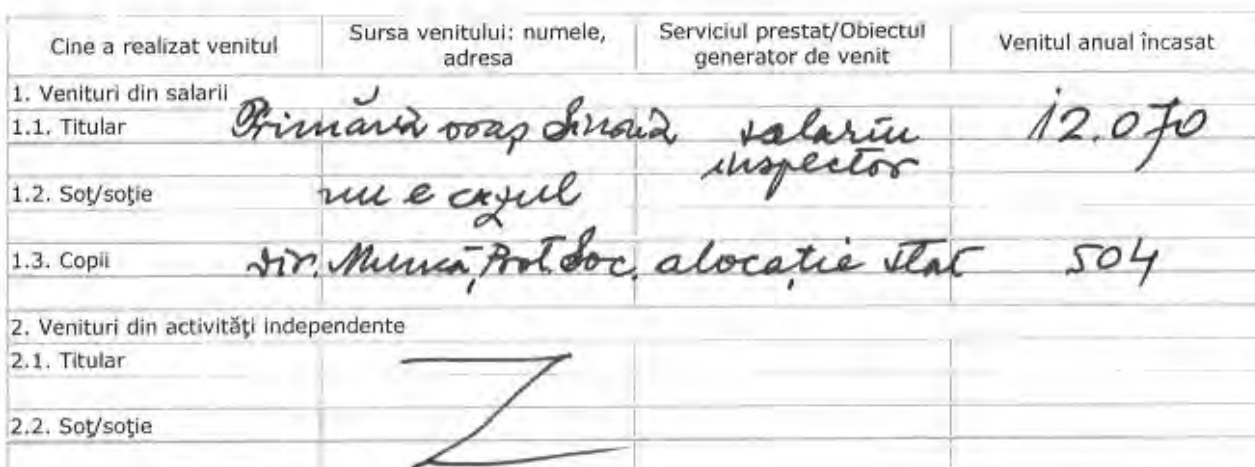 Cine a realizat venitul Sursa venitului: numele, adresa Serviciul prestat/Obiectul generator de venit Venitul anual încasat
1. Venituri din salarii
1.1. Titular Primăria oraș Sinaia salariu inspector 12.070
1.2. Soţ/soţie nu e cazul
1.3. Copii Dir. Muncă, Prot. Soc. alocație stat 504
2. Venituri din activităţi independente
2.1. Titular
2.2. Soţ/soţie